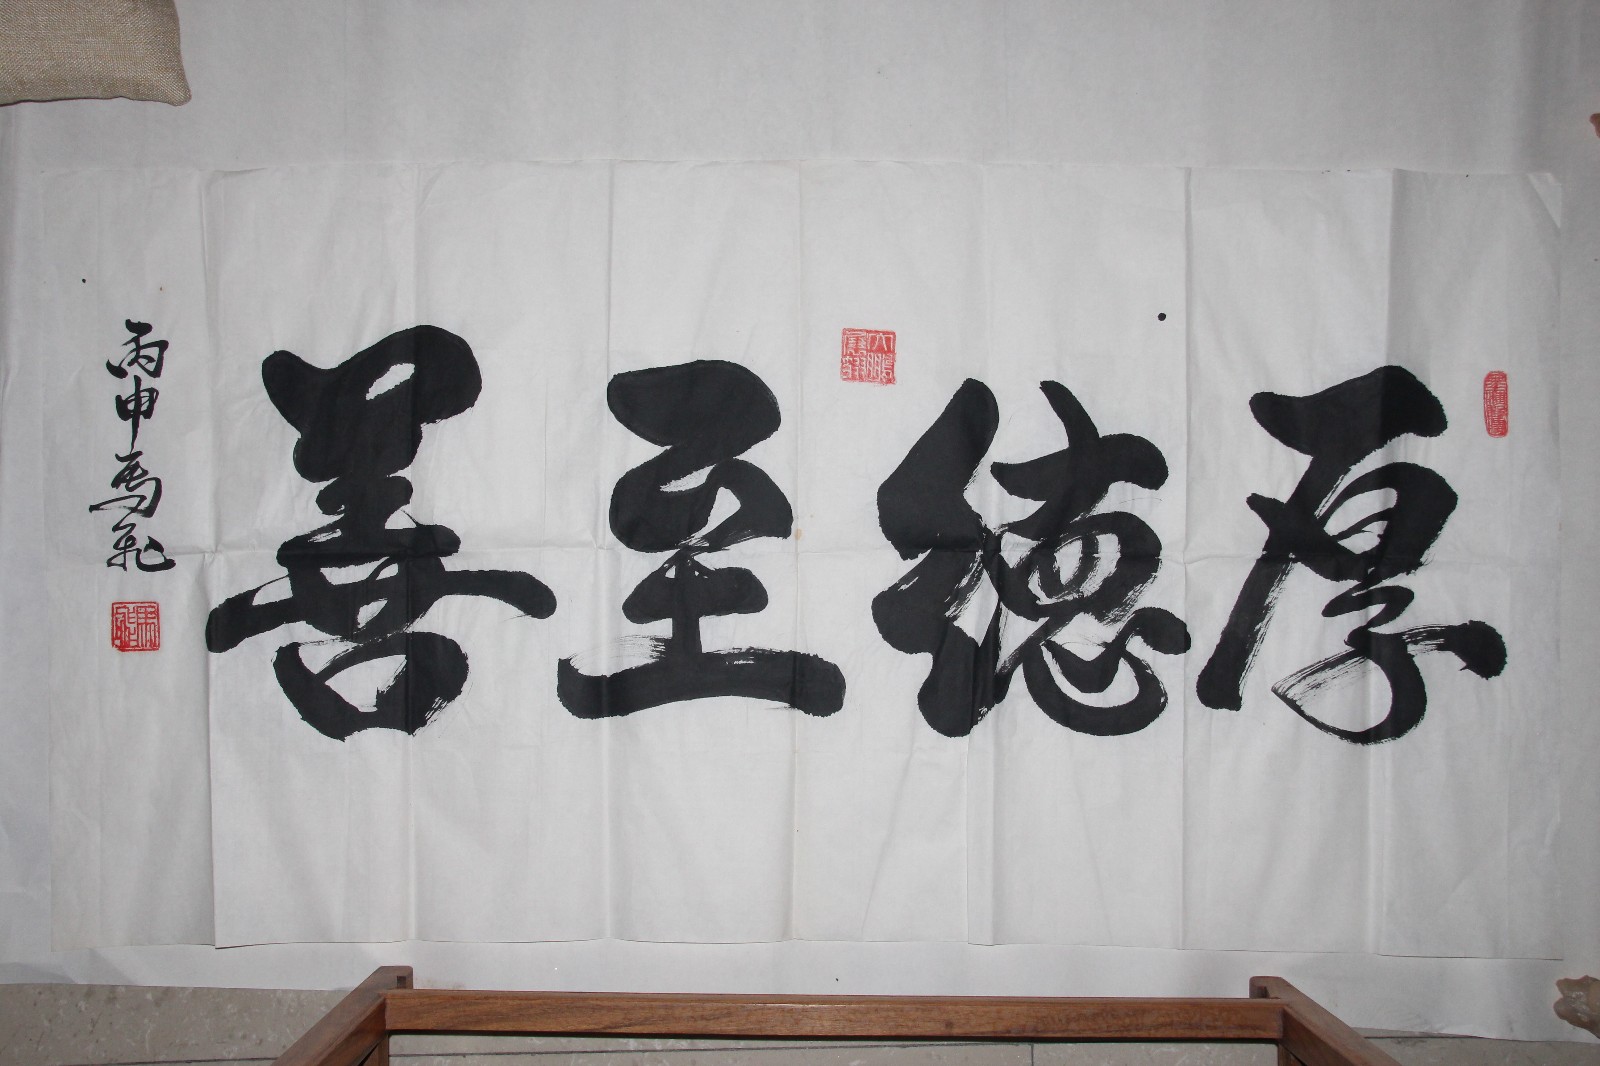 厚德至善
丙申馬飛